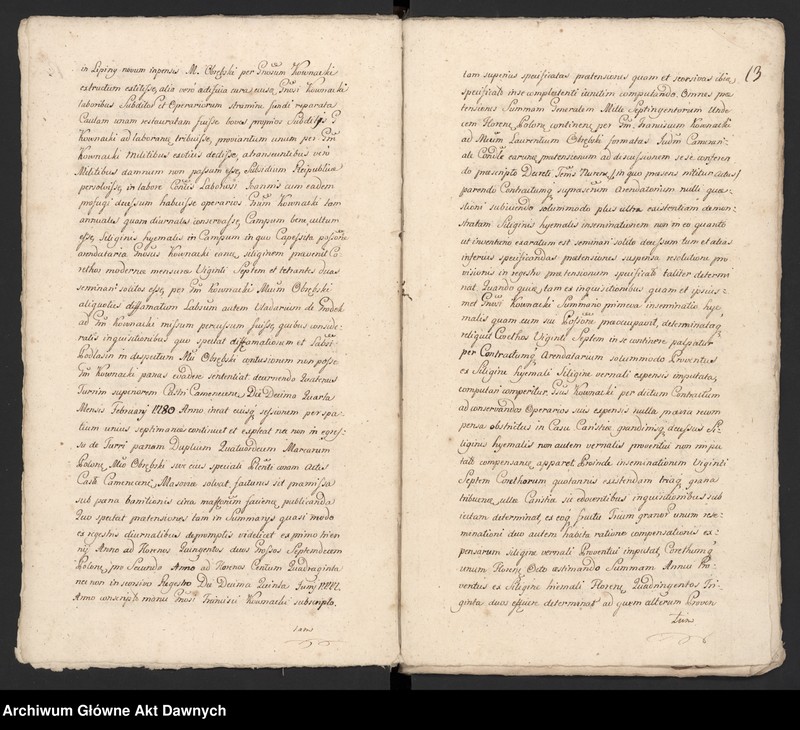 in Liping novum inpensis M. Obrębski per Gnosum Kownacki
extructum extitisse, alia vero ædificia cura ejusq Gnosi Kownacki
laboribus Subditor et Operariorum stramine fundi reparata
Cautam unam restauratam fuisse boves proprios Subditis G
Kownacki ad laborand tribuisse, proviantum unum per Gm
Kownacki Militibus exolvit dedisse, a transeuntibus vero
Militibus damnum non passum esse, Subsidium Reipublicæ
persolvisse, in labore Labohosi Joannis cum eadem
profugi decessum habuisse operarios Gnum Kownacki tam
annuales quam diurnales conservasse, Campum bene cultum
esse, Siliginis hyemalis in Campum in quo Capessita possone
arendataria Gnosus Kownacki eand siliginem prævenit Co
rethos moderna mensura Viginti Septem et tetrantes duos
seminari solitos esse, per Gm Kownacki Mcum Obrębski
aliquoties diffamatum Labsum autem Vladarium de Grodek
ad Gm Kownacki missum percussum fuisse, quibus conside-
ratis inquisitionibus quo spectat diffamationem et Subdti
Podlasin in despectum Mci Obrębski contusionem non posse
Gm Kownacki pænas evadere sententiat decernendo Quatenus
Turrim superiorem Castri Camenecens Die Decima Quarta
Mensis Februarij 1780 Anno ineat eiusq sessionem per spa-
tium unius septimanæ continuet et expleat nec non in egres-
su de Turri pænam Duplicem Quatuordecim Marcarum
Polonic Mco Obrębski sive eius speciali Plenti coram Actis
Cast Camenecen, Masoviæ solvat, facturus sit præmissa
sub pæna bannitionis circa favend publicanda
Quo spectat prætensiones tam in Summarys quasi modo
ex regestris diurnalibus depromptis videlicet ex primo hien
nij Anno ad florenos Quingentos duos Grossos Septemdecem
Polonic, pro Secundo Anno ad florenos Centum Quadraginta
nec non in seorsivo Regestro Die Decima Quinta Junij 1777.
Anno conscripto manu Gnosi Francisci Kownacki subscripto.
tam
13
tam superius specificatas prætensiones quam et seorsivas ibiq
specificatas in se complectenti iunctim computando. Omnes præ
tensiones Summam Generalem Mille Septingentorum Unde
cem floren Polonic continen, per Gm Franciscum Kownacki
ad Mcum Laurentium Obrębski formatas
earund prætensionum ad discussionem sese conferen
do præscripto Decreti Terris Nurens, in quo præsens nititur Actus,
parendo Contractumq supra eum Arendatorium nulli quæ-
stioni subiiciendo solummodo plus ultra existentiam demon-
stratam Siliginis hyemalis inseminationem non in eo quanto
ut inventario exaratum est seminari solito decessum tum et alias
inferius specificandas prætensiones suspensa resolutione pro
visionis in regestro prætensionum specificata taliter determi
nat, Quando quid tam ex inquisitionibus quam et ipsius-
met Gnosi Kownacki Summario primeva inseminatio hye
malis quam eum sui Possone præoccupavit, determinataq
reliquit Corethos Viginti Septem in se continere palpatur
per Contractumq Arendatarium solummodo Proventus
ex Siligine hyemali Siligine vernali expensis imputata,
computari comperitur, Gsus Kownacki per dictum Contractum
ad conservandos Operarios suis expensis nulla maxa recom
pensa obstrictus in Casu Caristiæ grandinisq decessus Si-
liginis hyemalis non autem vernalis proventui non impu
tata compensanda apparet, Proinde inseminationem Viginti
Septem Corethorum quotannis existendam triaq grana
tribuend, ultra Caristia sit edocendibus inquisitionibus sub
iectam determinat, ex eoq fructu Trium granor unum rese-
menationi duo autem habita ratione compensationis ex-
pensarum Siligine vernali Proventui imputat, Corethumq
unum florenis Octo æstimando Summam Annui Pro-
ventus ex Siligine hiemali floren, Quadringentos Tri-
ginta duos efficere determinat ad quem alterum Proven
tum
Archiwum Główne Akt Dawnych